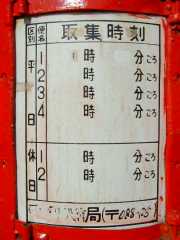 区別 便名 取集時刻
平日 1 時 分ごろ
2 時 分ごろ
3 時 分ごろ
4 時 分ごろ
休日 1 時 分ごろ
2 時 分ごろ
局(〒088-